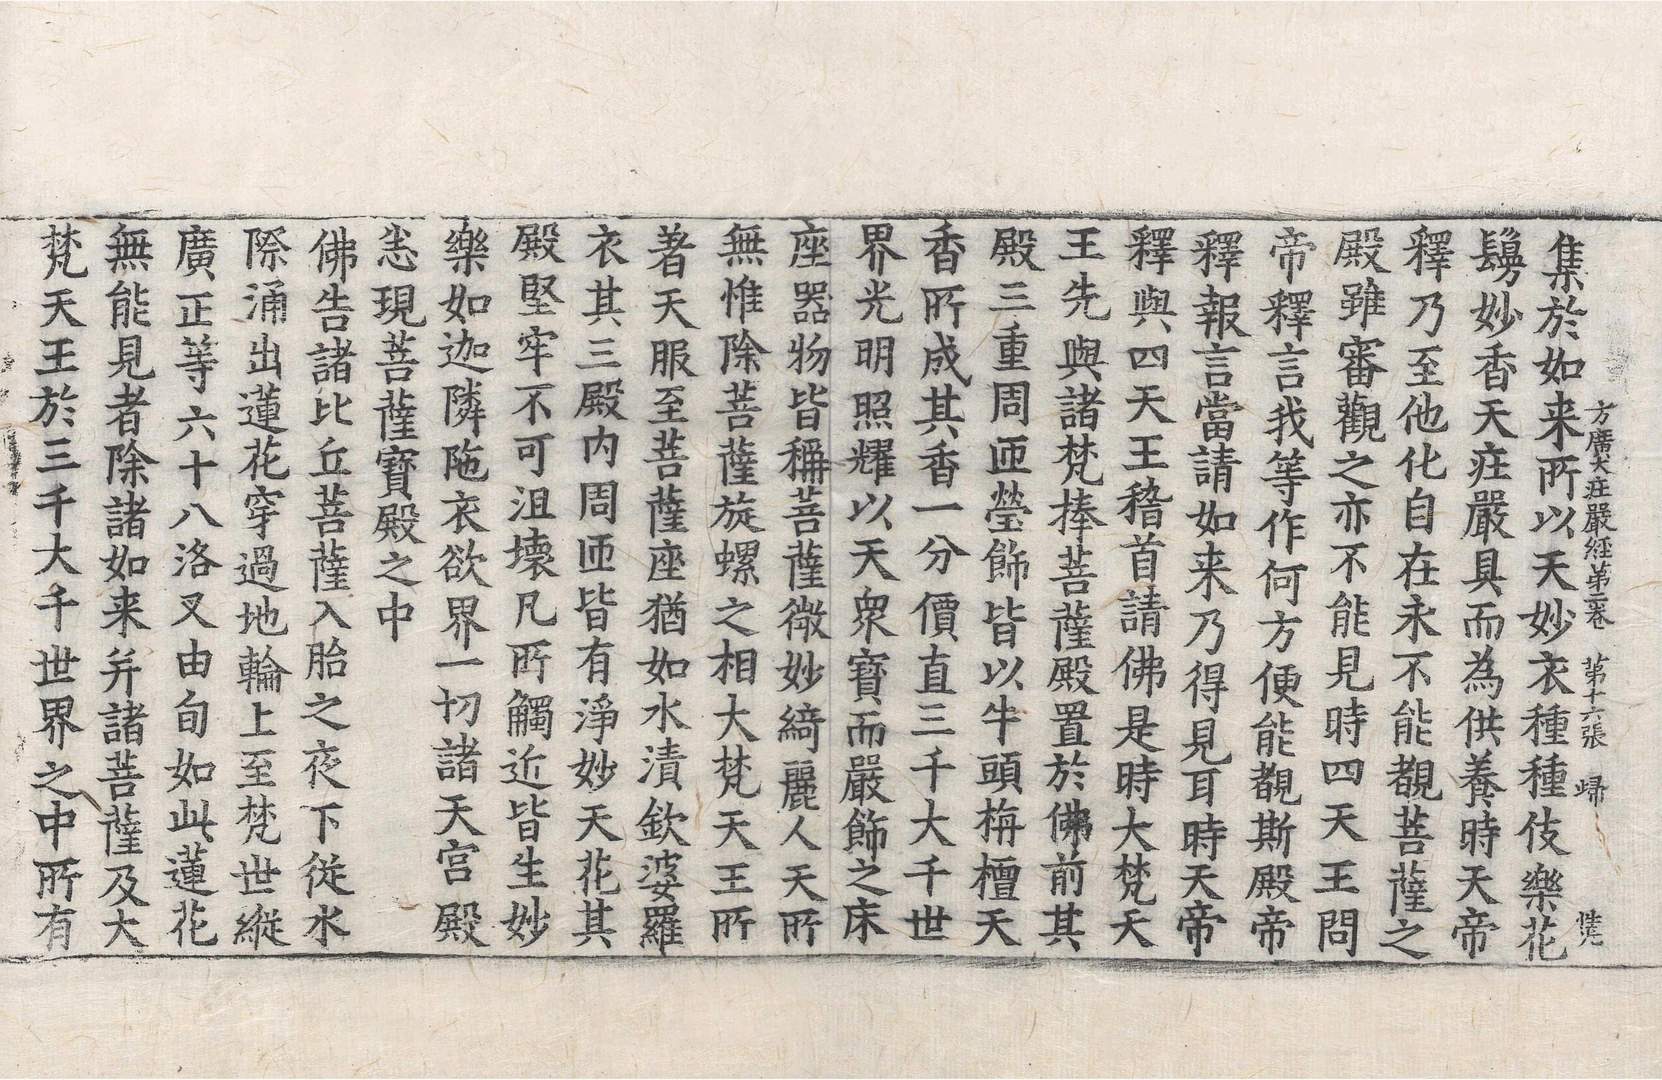 方廣大莊嚴經第二卷 第十六張 歸
集於如来所以天妙衣種種伎樂花
鬘妙香天莊嚴具而為供養時天帝
釋乃至他化自在永不能覩菩薩之
殿雖審觀之亦不能見時四天王問
帝釋言我等作何方便能覩斯殿帝
釋報言當請如来乃得見耳時天帝
釋與四天王稽首請佛是時大梵天
王先與諸梵捧菩薩殿置於佛前其
殿三重周匝瑩飾皆以牛頭栴檀天
香所成其香一分價直三千大千世
界光明照耀以天眾寶而嚴飾之床
座器物皆稱菩薩微妙綺麗人天所
無惟除菩薩旋螺之相大梵天王所
著天服至菩薩座猶如水漬欽婆羅
衣其三殿内周匝皆有淨妙天花其
殿堅牢不可沮壞凡所觸近皆生妙
樂如迦隣陁衣欲界一切諸天宮殿
悉現菩薩寶殿之中
佛告諸比丘菩薩入胎之夜下從水
際涌出蓮花穿過地輪上至梵世縱
廣正等六十八洛叉由旬如此蓮花
無能見者除諸如来并諸菩薩及大
梵天王於三千大千世界之中所有